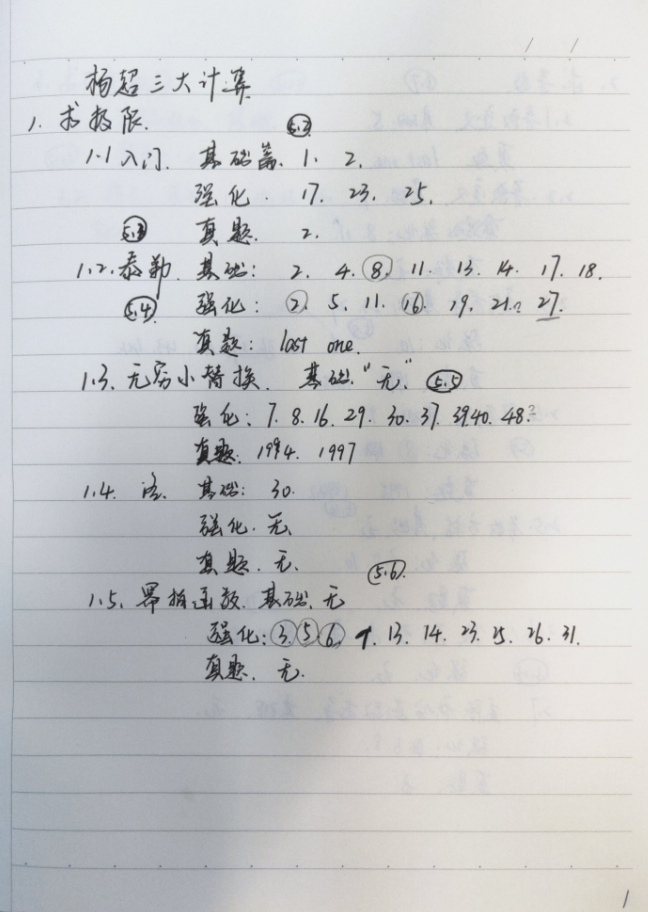 杨超三大计算
1. 求极限. 5.2
1.1 入门. 基础篇. 1. 2.
强化. 17. 23. 25.
5.3 真题. 2.
1.2. 泰勒. 基础: 2. 4. ⑧. 11. 13. 14. 17. 18.
5.4 强化: ② 5. 11. ⑯. 19. 21.? 27.
真题: last one.
1.3. 无穷小替换. 基础. "无" 5.5
强化: 7. 8. 16. 29. 30. 37. 39.40. 48?
真题. 1994. 1997
1.4. 洛. 基础: 30.
强化. 无.
真题. 无.
5.6.
1.5. 幂指函数. 基础. 无
强化: ③ ⑤ ⑥. 13. 14. 23. 25. 26. 31.
真题. 无.
1